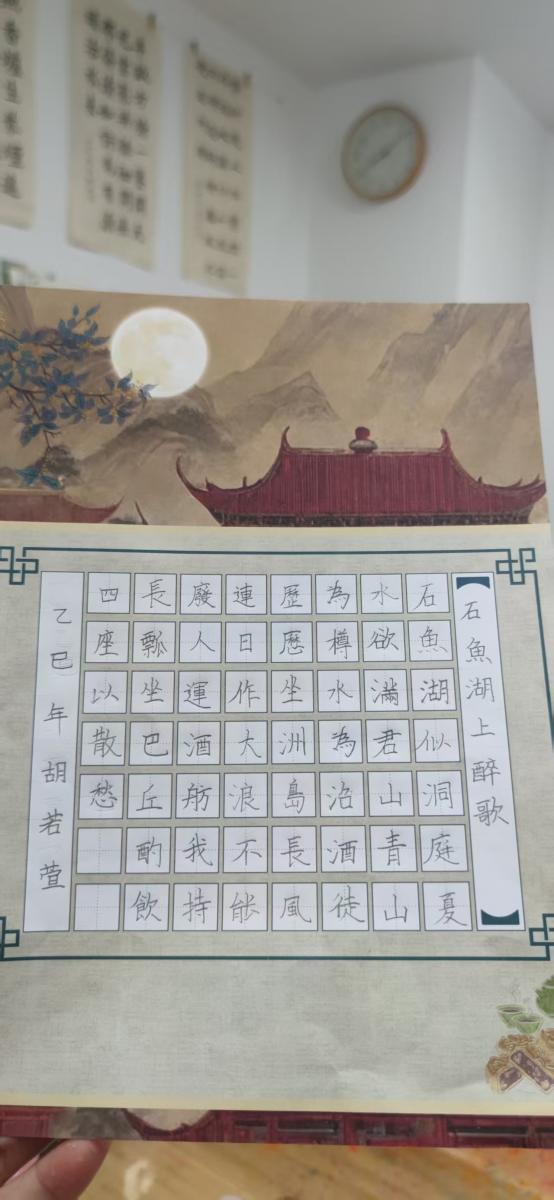 石魚湖上醉歌
石魚湖似洞庭夏
水欲滿君山青山
為樽水為沼酒徒
歷歷坐洲島長風
連日作大浪不能
廢人運酒舫我持
長瓢坐巴丘酌飲
四座以散愁
乙巳年胡若萱